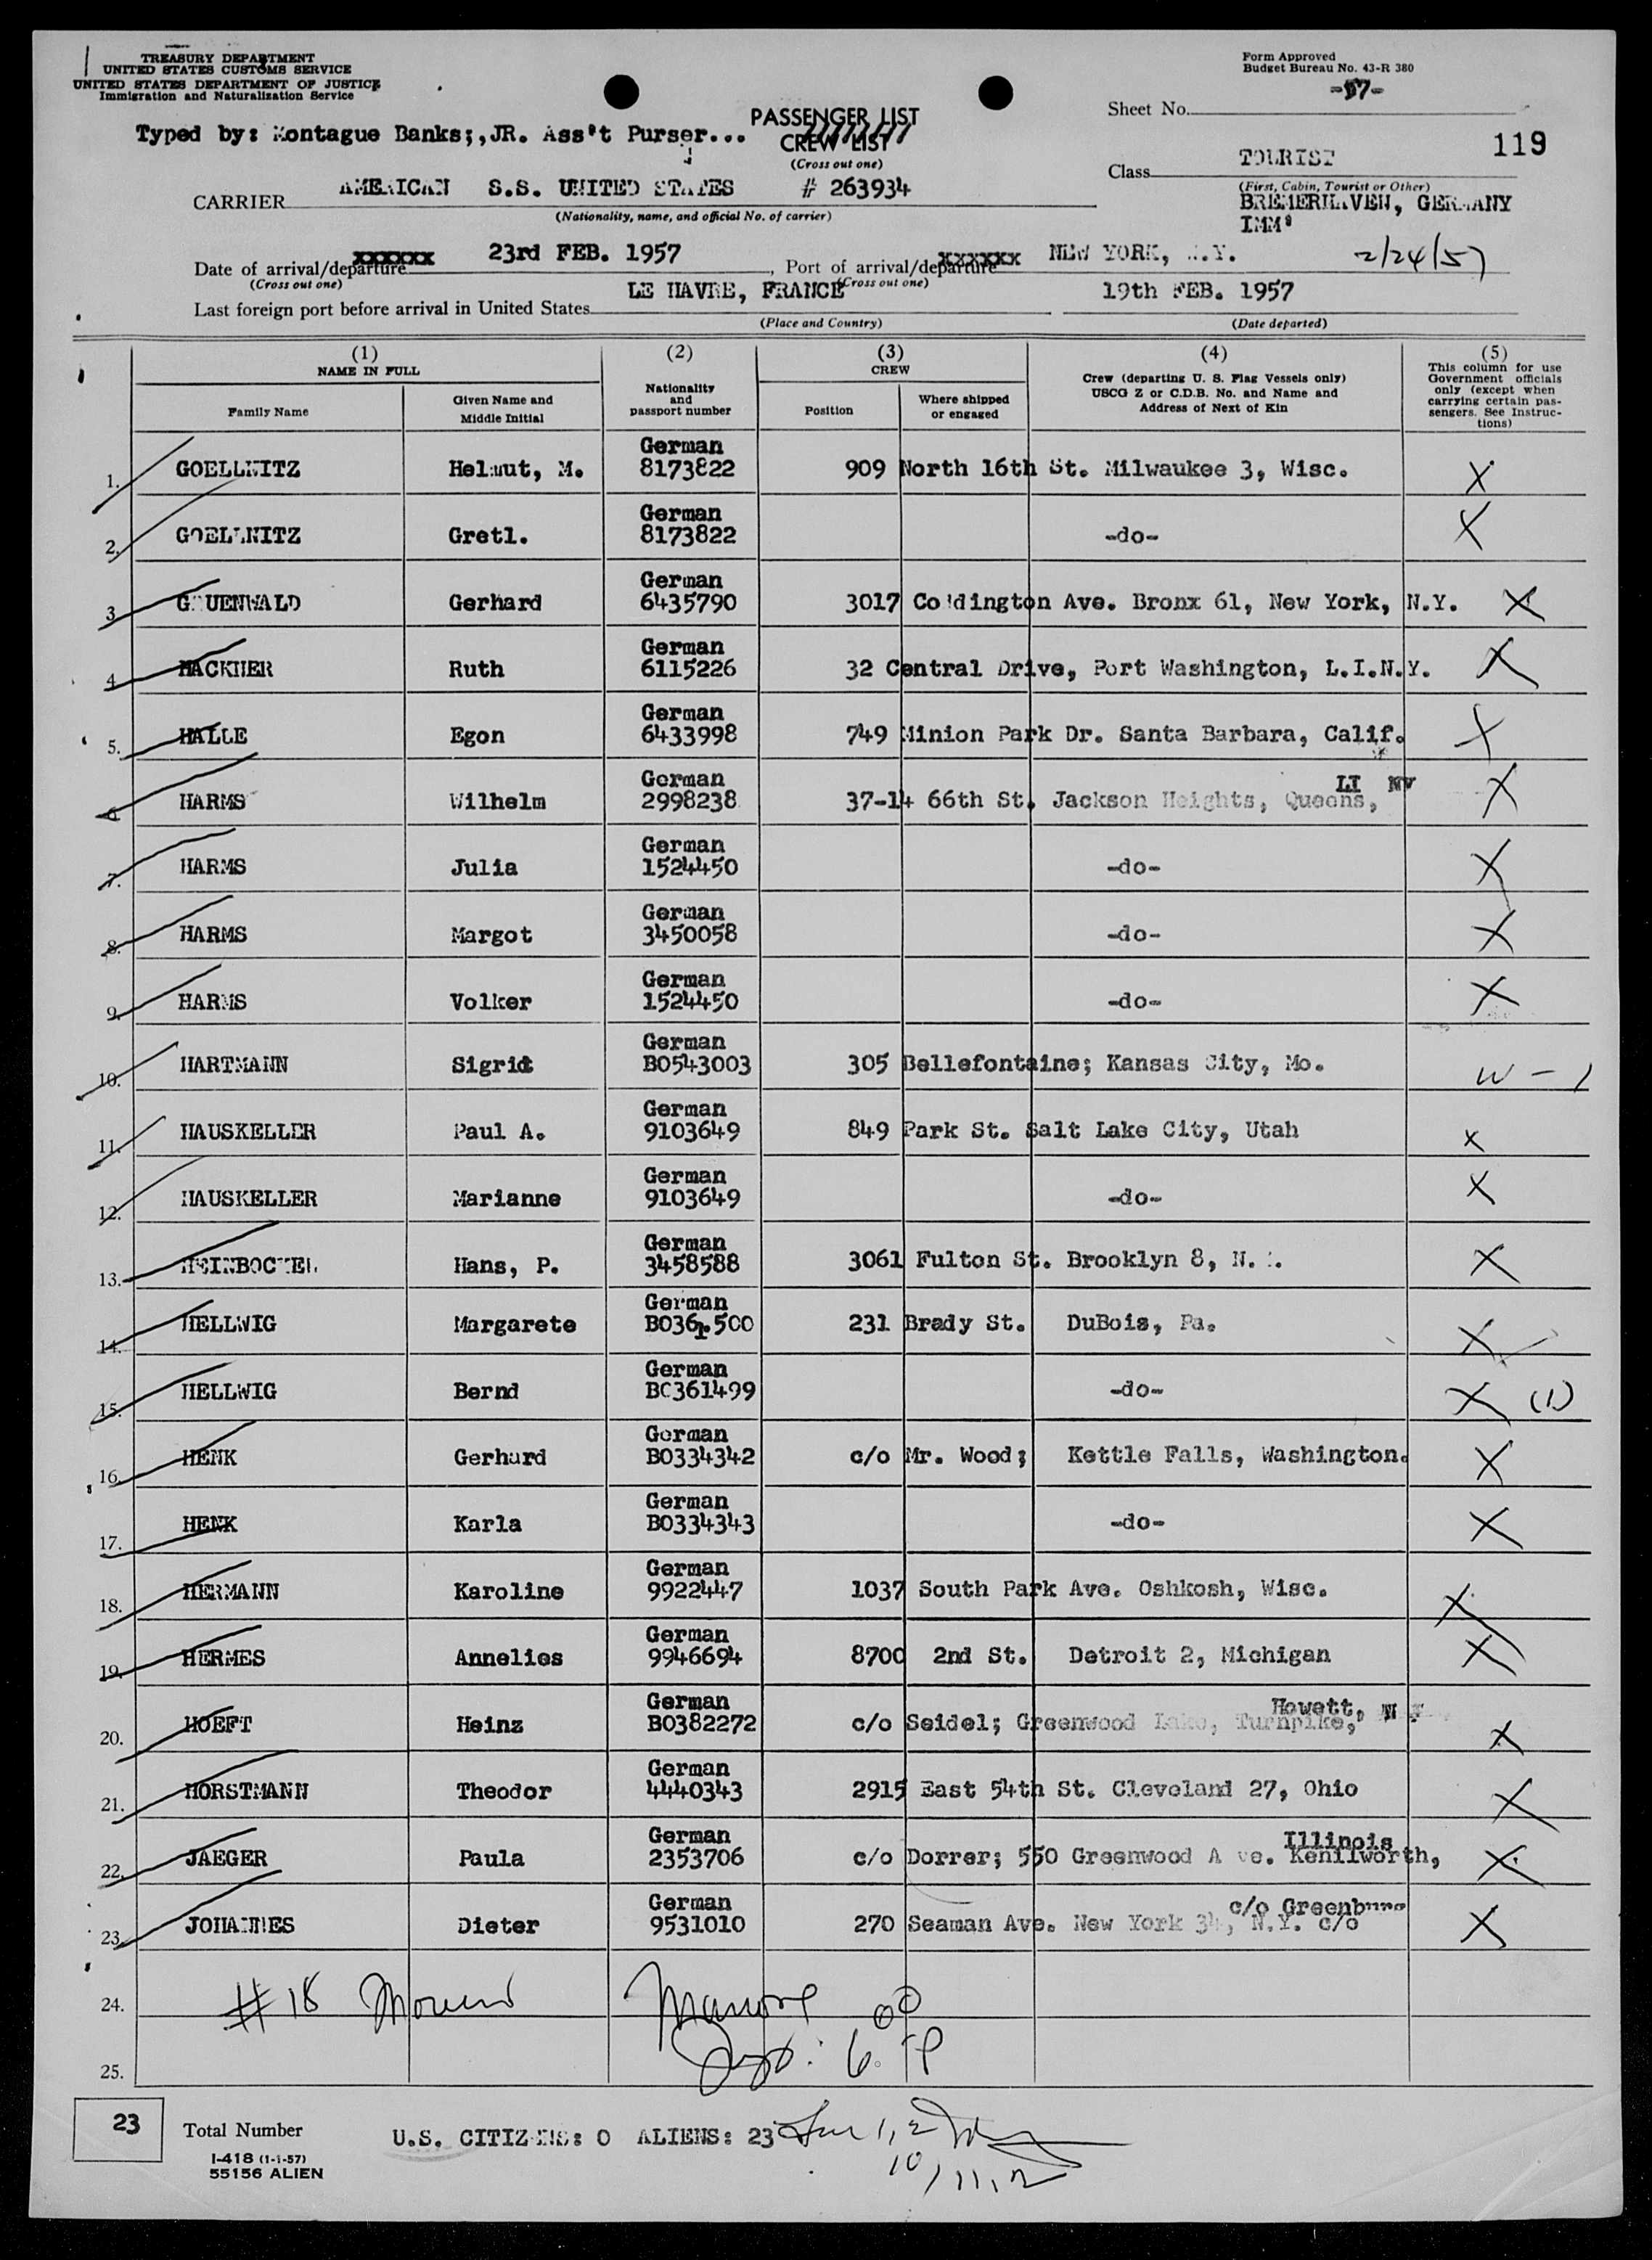 TREASURY DEPARTMENT
UNITED STATES CUSTOMS SERVICE
UNITED STATES DEPARTMENT OF JUSTICE
Immigration and Naturalization Service
Form Approved
Budget Bureau No. 43-R 380
-57-
Sheet No.
Typed by: Montague Banks;,JR. Ass't Purser...
PASSENGER LIST
CREW LIST
(Cross out one)
119
Class TOURIST
(First, Cabin, Tourist or Other)
CARRIER AMERICAN S.S. UNITED STATES # 263934
(Nationality, name, and official No. of carrier)
BREMERHAVEN, GERMANY
IMM'
Date of arrival/departure xxxxxx 23rd FEB. 1957, Port of arrival/departure xxxxxx NEW YORK, N.Y. 2/24/57
(Cross out one) (Cross out one)
Last foreign port before arrival in United States LE HAVRE, FRANCE 19th FEB. 1957
(Place and Country) (Date departed)
(1) NAME IN FULL
Family Name
Given Name and Middle Initial
(2)
Nationality and passport number
(3) CREW
Position
Where shipped or engaged
(4)
Crew (departing U. S. Flag Vessels only) USCG Z or C.D.B. No. and Name and Address of Next of Kin
(5)
This column for use Government officials only (except when carrying certain passengers. See Instructions)
1. GOELLNITZ Helmut, M. German 8173822 909 North 16th St. Milwaukee 3, Wisc. X
2. GOELLNITZ Gretl. German 8173822 -do- X
3. GRUENWALD Gerhard German 6435790 3017 Coddington Ave. Bronx 61, New York, N.Y. X
4. HACKNER Ruth German 6115226 32 Central Drive, Port Washington, L.I.N.Y. X
5. HALLE Egon German 6433998 749 Minion Park Dr. Santa Barbara, Calif. X
6. HARMS Wilhelm German 2998238 37-14 66th St. Jackson Heights, Queens, LI NY X
7. HARMS Julia German 1524450 -do- X
8. HARMS Margot German 3450058 -do- X
9. HARMS Volker German 1524450 -do- X
10. HARTMANN Sigrid German B0543003 305 Bellefontaine; Kansas City, Mo. W - 1
11. HAUSKELLER Paul A. German 9103649 849 Park St. Salt Lake City, Utah X
12. HAUSKELLER Marianne German 9103649 -do- X
13. HEINBOCKEL Hans, P. German 3458588 3061 Fulton St. Brooklyn 8, N. X
14. HELLWIG Margarete German B0361500 231 Brady St. DuBois, Pa. X
15. HELLWIG Bernd German B0361499 -do- X (1)
16. HENK Gerhard German B0334342 c/o Mr. Wood; Kettle Falls, Washington. X
17. HENK Karla German B0334343 -do- X
18. HERMANN Karoline German 9922447 1037 South Park Ave. Oshkosh, Wisc. X
19. HERMES Annelies German 9946694 8700 2nd St. Detroit 2, Michigan X
20. HOEFT Heinz German B0382272 c/o Seidel; Greenwood Lake, Turnpike, Howett, N X
21. HORSTMANN Theodor German 4440343 2915 East 54th St. Cleveland 27, Ohio X
22. JAEGER Paula German 2353706 c/o Dorrer; 550 Greenwood A ve. Kenilworth, Illinois X
23. JOHANNES Dieter German 9531010 270 Seaman Ave. New York 34, N.Y. c/o c/o Greenburg X
24. #18
25.
23 Total Number
U.S. CITIZENS: 0 ALIENS: 23
I-418 (1-1-57)
55156 ALIEN